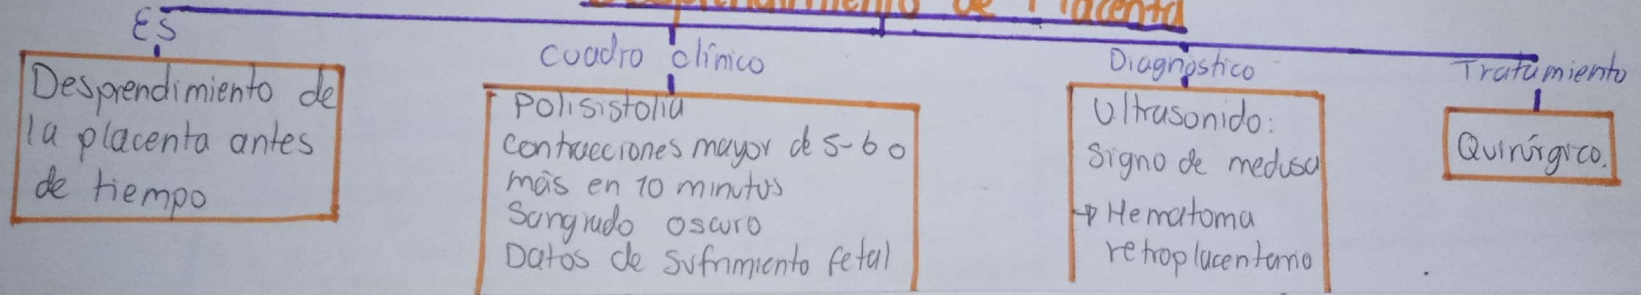 Desprendimiento de Placenta
Es
Desprendimiento de
la placenta antes
de tiempo
Cuadro clínico
Polisistolia
contracciones mayor de 5-6 o
más en 10 minutos
Sangrado oscuro
Datos de sufrimiento fetal
Diagnóstico
Ultrasonido:
signo de medusa
→ Hematoma
retroplacentario
Tratamiento
Quirúrgico.